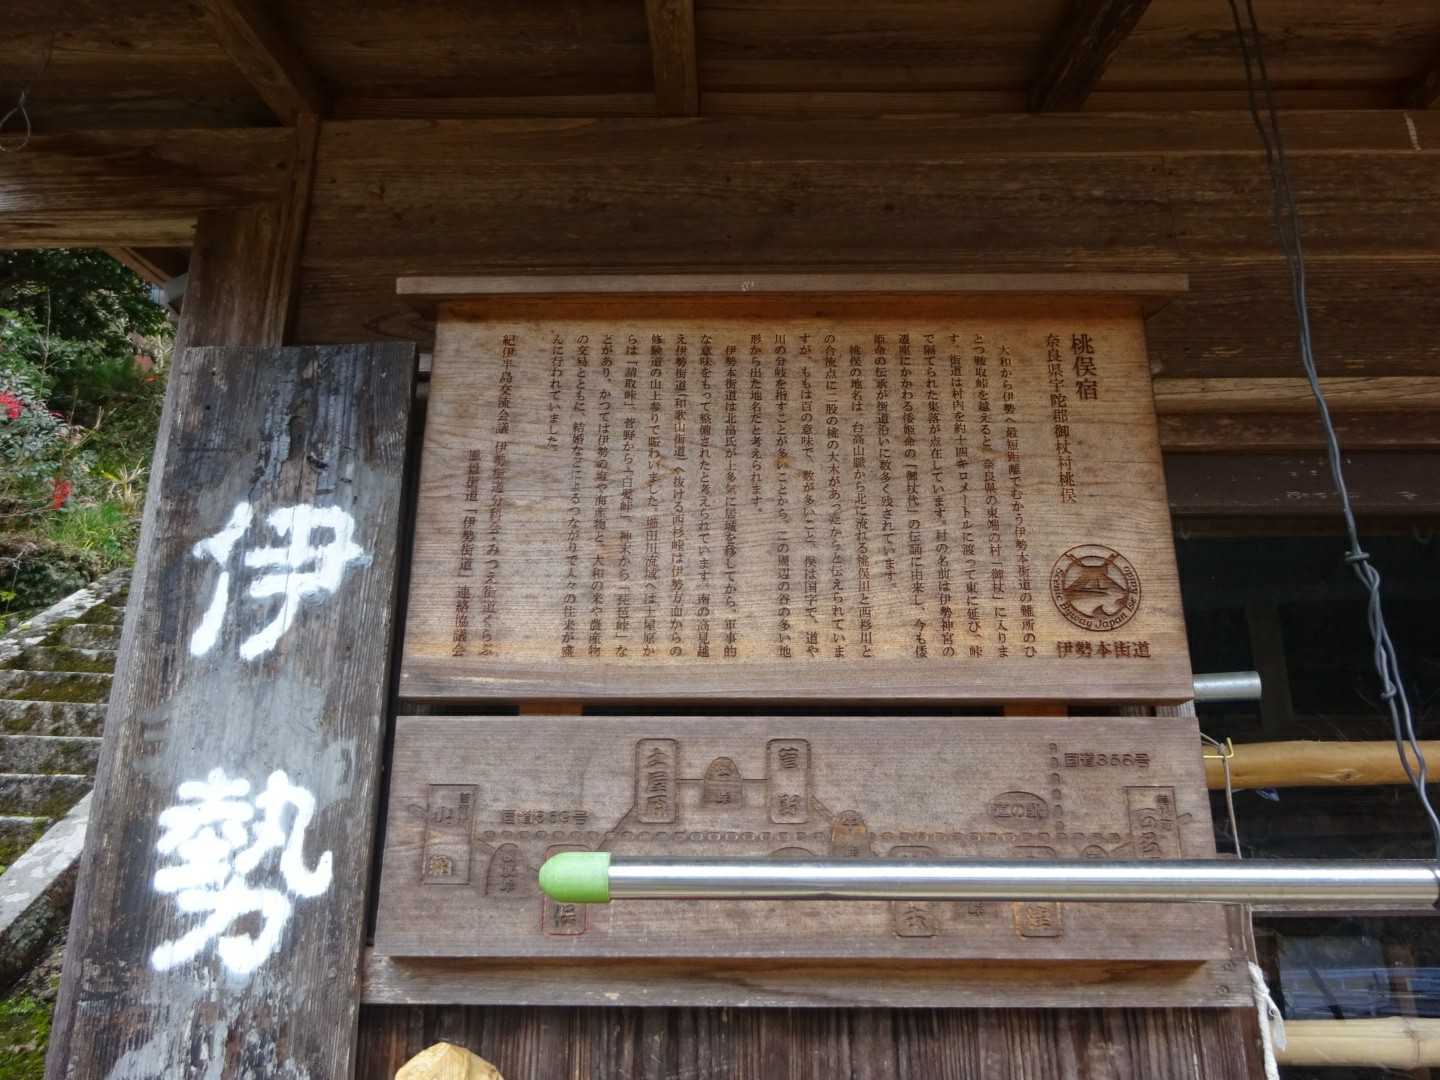 桃俣宿
奈良県宇陀郡御杖村桃俣
大和から伊勢へ最短距離でむかう伊勢本街道の難所のひ
とつ鞍取峠を越えると、奈良県の東端の村「御杖」に入りま
す。街道は村内を約十四キロメートルに渡って東に延び、峠
で隔てられた集落が点在しています。村の名前は伊勢神宮の
遷座にかかわる倭姫命の「御杖代」の伝誦に由来し、今も倭
姫命の伝承が街道沿いに数多く残されています。
桃俣の地名は、台高山脈から北に流れる桃俣川と西杉川と
の合流点に二股の桃の大木があったからと伝えられていま
すが、ももは百の意味で、数が多いこと、俣は国字で、道や
川の分岐を指すことが多いことから、この周辺の谷の多い地
形から出た地名だと考えられます。
伊勢本街道は北畠氏が上多気に居城を移してから、軍事的
な意味をもって整備されたと考えられています。南の高見越
え伊勢街道(和歌山街道)へ抜ける西杉峠は伊勢方面からの
修験道の山上参りで賑わいました。掛田川流域へは土屋原か
らは「請取峠」、菅野から「白髪峠」、神末から「琵琶峠」な
どがあり、かつては伊勢の塩や海産物と、大和の米や農産物
の交易とともに、結婚などによるつながりで人々の往来が盛
んに行われていました。
紀伊半島交流会議 伊勢街道分科会・みつえ街道くらぶ
風景街道「伊勢街道」連絡協議会
Scenic Byway Japan for Kanto
伊勢本街道
伊
勢
国道368号
国道369号
土屋原
菅野